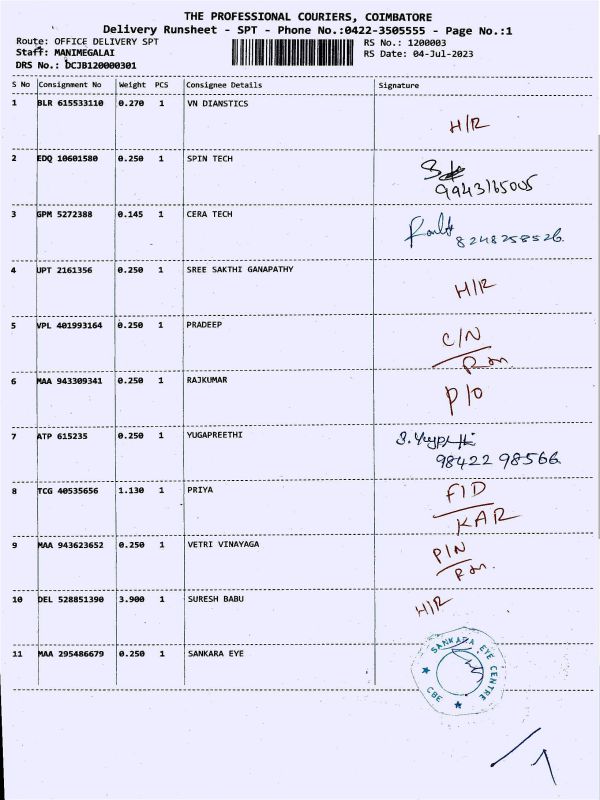 THE PROFESSIONAL COURIERS, COIMBATORE
Delivery Runsheet - SPT - Phone No.:0422-3505555 - Page No.:1
Route: OFFICE DELIVERY SPT RS No.: 1200003
Staff: MANIMEGALAI RS Date: 04-Jul-2023
DRS No.: DCJB120000301
S No Consignment No Weight PCS Consignee Details Signature
1 BLR 615533110 0.270 1 VN DIANSTICS H/R
2 EDQ 10601580 0.250 1 SPIN TECH
9943165005
3 GPM 5272388 0.145 1 CERA TECH
8248258526.
4 UPT 2161356 0.250 1 SREE SAKTHI GANAPATHY H/R
5 VPL 401993164 0.250 1 PRADEEP C/N
6 MAA 943309341 0.250 1 RAJKUMAR P/O
7 ATP 615235 0.250 1 YUGAPREETHI
98422 98566
8 TCG 40535656 1.130 1 PRIYA F/D
KAR
9 MAA 943623652 0.250 1 VETRI VINAYAGA P/N
10 DEL 528851390 3.900 1 SURESH BABU H/R
11 MAA 295486679 0.250 1 SANKARA EYE SANKARA EYE CENTRE
CBE